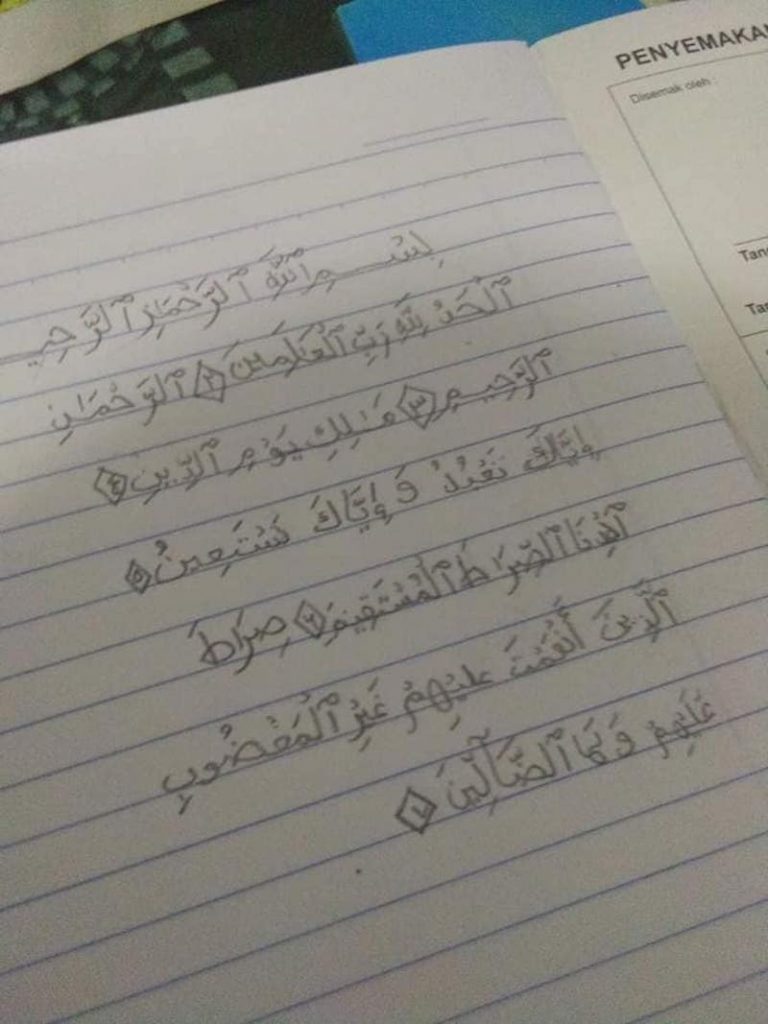 بِسْمِ ٱللَّهِ ٱلرَّحْمَٰنِ ٱلرَّحِي
ٱلْحَمْدُ لِلَّهِ رَبِّ ٱلْعَٰلَمِينَ ٢ ٱلرَّحْمَٰنِ
ٱلرَّحِيمِ ٣ مَٰلِكِ يَوْمِ ٱلدِّينِ ٤
إِيَّاكَ نَعْبُدُ وَإِيَّاكَ نَسْتَعِينُ ٥
ٱهْدِنَا ٱلصِّرَٰطَ ٱلْمُسْتَقِيمَ ٦ صِرَٰطَ
ٱلَّذِينَ أَنْعَمْتَ عَلَيْهِمْ غَيْرِ ٱلْمَغْضُوبِ
عَلَيْهِمْ وَلَا ٱلضَّآلِّينَ
PENYEMAKA
Disemak oleh :
Tan
Ta